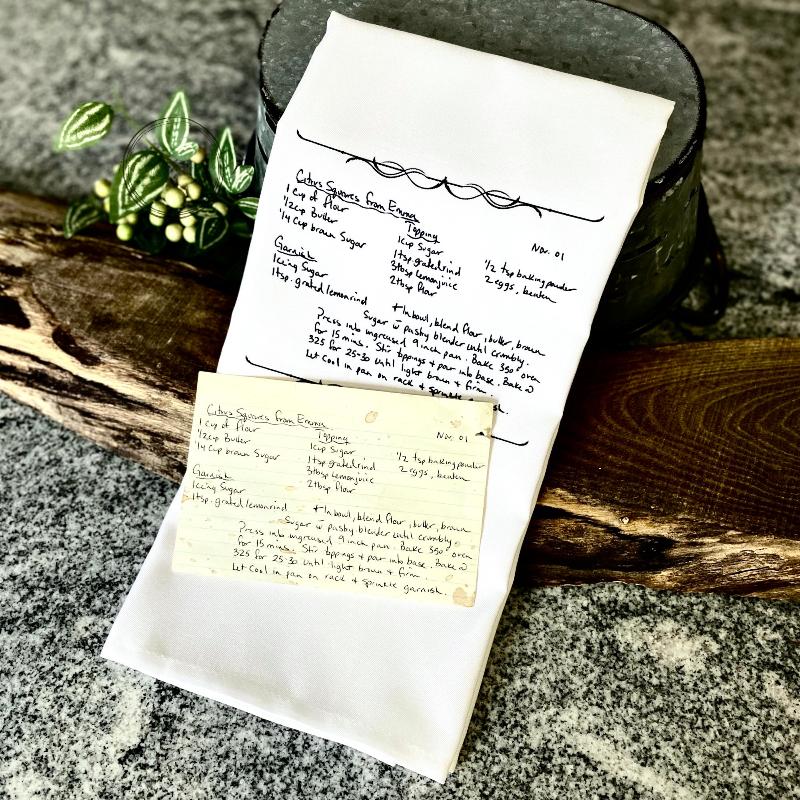 Citrus Squares from Emma
1 Cup of flour
1/2cup Butter
1/4 Cup brown Sugar
Topping
1cup Sugar
1tsp. grated rind
3tbsp lemon juice
2tbsp flour
Nov. 01
1/2 tsp baking powder
2 eggs, beaten
Garnish
Icing Sugar
1tsp. grated lemon rind
* In bowl, blend flour, butter, brown
Sugar w pastry blender until crumbly.
Press into ungreased 9 inch pan. Bake 350° oven
for 15 mins. Stir toppings + pour into base. Bake @
325 for 25-30 until light brown + firm.
Let Cool in pan on rack + sprinkle
Citrus Squares from Emma
1 Cup of flour
1/2cup Butter
1/4 Cup brown Sugar
Topping
1cup Sugar
1tsp grated rind
3tbsp lemon juice
2tbsp flour
Nov. 01
1/2 tsp baking powder
2 eggs, beaten
Garnish
Icing Sugar
1tsp. grated lemon rind
* In bowl, blend flour, butter, brown
Sugar w pastry blender until crumbly.
Press into ungreased 9 inch pan. Bake 350° oven
for 15 mins. Stir toppings + pour into base. Bake @
325 for 25-30 until light brown + firm.
Let Cool in pan on rack + sprinkle garnish.